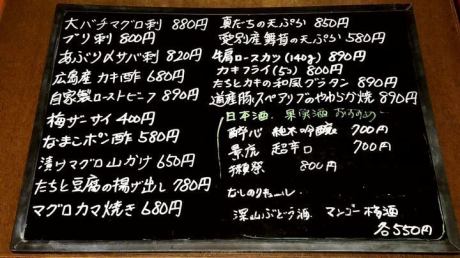 大バチマグロ刺 880円
ブリ刺 800円
あぶり〆サバ刺 820円
広島産 カキ酢 680円
自家製ローストビーフ 890円
梅ザーサイ 400円
なまこポン酢 580円
漬けマグロ山かけ 650円
たちと豆腐の揚げ出し 780円
マグロカマ焼き 680円
真たちの天ぷら 850円
愛別産舞茸の天ぷら 580円
牛肩ロースカツ(140g) 890円
カキフライ(5コ) 800円
たちとカキの和風グラタン 890円
道産豚スペアリブのやわらか焼 890円
日本酒、果実酒 おすすめ
酔心 純米吟醸 700円
景虎 超辛口 700円
獺祭 800円
深山ぶどう酒 マンゴー梅酒
各550円